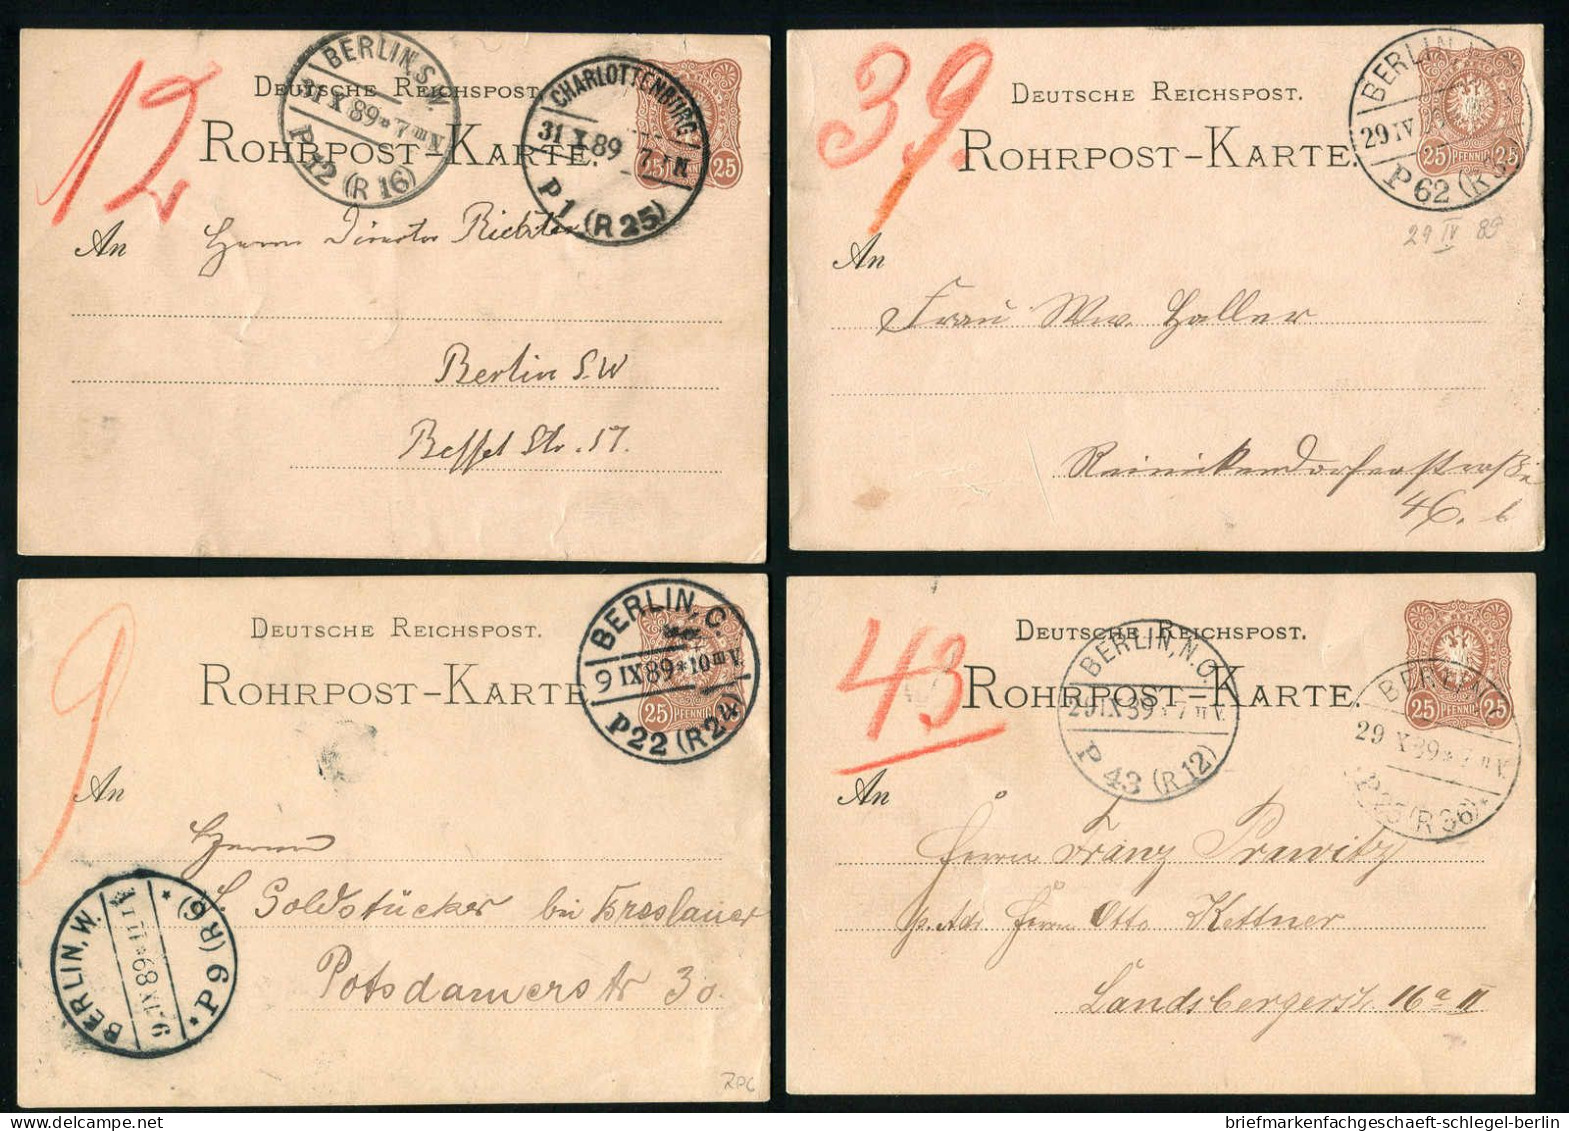 12
BERLIN S.W.
31 X 89 * 7 III V
P 12 (R 16)
CHARLOTTENBURG
31 X 89
P 1 (R 25)
DEUTSCHE REICHSPOST.
ROHRPOST-KARTE
25 25
An
Herrn Director
Berlin S.W
Str. 57.
39.
BERLIN
29 IV
P 62 (R
DEUTSCHE REICHSPOST.
ROHRPOST-KARTE.
25 PFENNIG 25
29 IV 89
An
Frau Ww. Haller
Reinickendorferstraße
46. b
9
BERLIN, C.
9 IX 89 * 10 III V.
P 22 (R 24)
DEUTSCHE REICHSPOST.
ROHRPOST-KARTE
25 PFENNIG
An
Herrn
S. Goldstücker bei Breslauer
Potsdamerstr 30.
BERLIN, W.
9 IX 89 * 11
* P 9 (R 6) *
43
DEUTSCHE REICHSPOST.
BERLIN, N.O.
29 IX 89 * 7 II V.
P 43 (R 12)
ROHRPOST-KARTE
25 PFENNIG 25
BERLIN
29 X 89 * 7 II V.
P 25 (R 36) *
An
Herrn Franz Prewitz
p. Adr. Herrn Otto Kettner
Landsbergerstr. 16a II
briefmarkenfachgeschaeft-schlegel-berlin